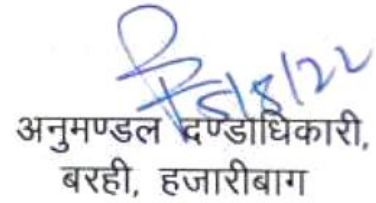 5/8/22
अनुमण्डल दण्डाधिकारी,
बरही, हजारीबाग